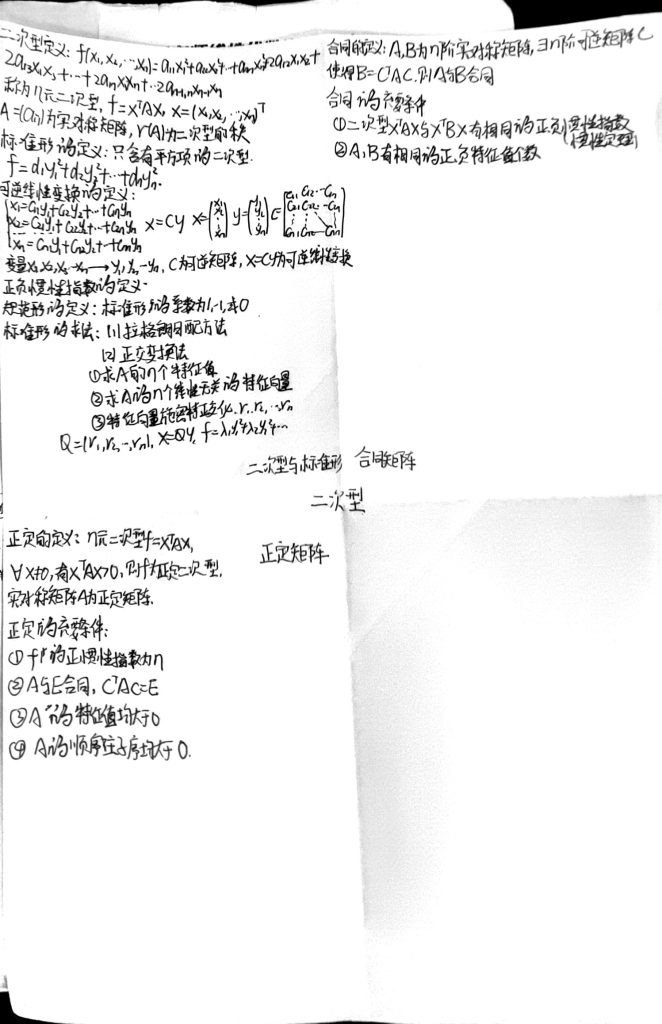 二次型定义: f(x₁, x₂, …, xₙ)=a₁₁x₁²+a₂₂x₂²+…+aₙₙxₙ²+2a₁₂x₁x₂+
2a₁₃x₁x₃+…+2a₁ₙx₁xₙ+…2aₙ₋₁,ₙxₙ₋₁xₙ
称为n元二次型, f=xᵀAx, x=(x₁,x₂,…,xₙ)ᵀ
A=(aᵢⱼ)为实对称矩阵, r(A)为二次型的秩
标准形的定义: 只含有平方项的二次型.
f=d₁y₁²+d₂y₂²+…+dₙyₙ².
可逆线性变换的定义:
x₁=c₁₁y₁+c₁₂y₂+…+c₁ₙyₙ
x₂=c₂₁y₁+c₂₂y₂+…+c₂ₙyₙ x=Cy
xₙ=cₙ₁y₁+cₙ₂y₂+…+cₙₙyₙ
变量x₁,x₂,x₃…xₙ→y₁,y₂…yₙ, C为可逆矩阵, x=Cy为可逆线性变换
正负惯性指数的定义.
规范形的定义: 标准形的系数为1,-1,或0
标准形的求法: (1)拉格朗日配方法
(2)正交变换法
①求A的n个特征值
②求A的n个线性无关的特征向量
③特征向量施密特正交化, r₁,r₂,…,rₙ
Q=(r₁,r₂,…,rₙ), x=Qy, f=λ₁y₁²+λ₂y₂²+…
合同的定义: A,B为n阶实对称矩阵, ∃n阶可逆矩阵C
使得B=CᵀAC, 则A与B合同
合同的充要条件
①二次型xᵀAx与xᵀBx有相同的正负惯性指数
(惯性定理)
②A,B有相同的正负特征值个数
二次型与标准形 合同矩阵
二次型
正定矩阵
正定的定义: n元二次型f=xᵀAx,
∀x≠0, 有xᵀAx>0, 则f为正定二次型,
实对称矩阵A为正定矩阵.
正定的充要条件:
①f的正惯性指数为n
②A与E合同, CᵀAC=E
③A的特征值均大于0
④A的顺序主子序均大于0.